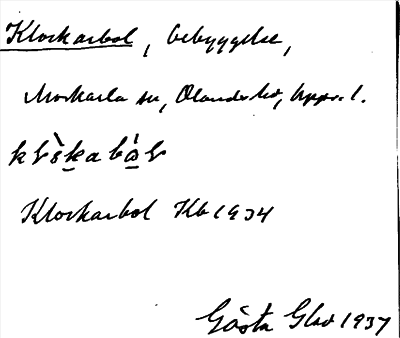 Klockarbol, bebyggelse,
Morkarla sn, Olands hd, Upps. l.
Klockarbol Kb 1934
Gösta Glad 1937